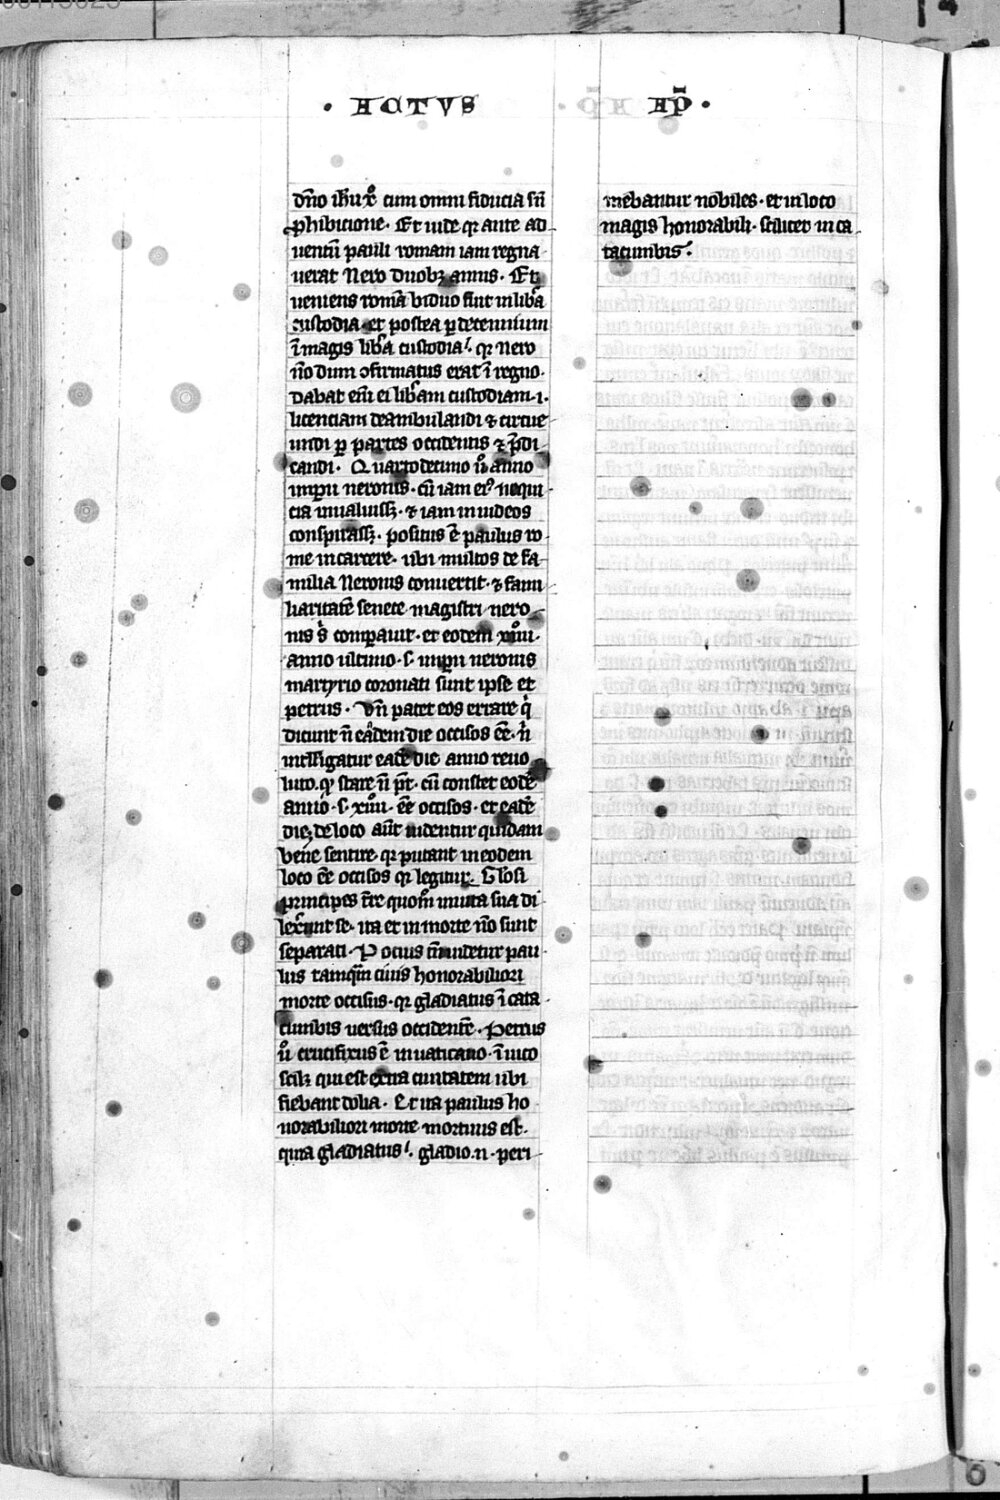 · ACTVS
AP̄ ·
dn̄o ih̄u xº cum omni fiducia sn̄
ꝓhibicione · Et uide qr ante ad
uentū pauli romam iam regna
uerat Nero duobꝫ annis · Et
ueniens romā biduo fuit in lib̄a
custodia · et postea ꝑ decennium
ī magis lib̄a custodia · qr nero
nōdum ꝯfirmatus erat ī regno ·
dabat em̄ ei lib̄am custodiam · i ·
licenciam deambulandi ⁊ circue
undi ꝑ partes occidentis ⁊ p̄di
candi · Quartodecimo ū anno
imperii neronis · cū iam eiꝰ nequi
cia inualuissꝫ · ⁊ iam in iudeos
conspirassꝫ · positus ē paulus ro
me in carcere · ubi multos de fa
milia Neronis conuertit · ⁊ fami
liaritatē senece magistri nero
nis s̄ comparuit · et eodem xiiii ·
anno ultimo · s · imperii neronis
martyrio coronati sunt ipse et
petrus · Vn̄ patet eos errare q̄
dicunt n̄ eadem die occisos ēe · n̄
intelligatur eadē die anno reuo
luto · qͥ stare n̄ p̄t · cū constet eodē
anno · s · xiiii · ēe occisos · et eadē
die · de loco aūt uidentur quidam
bene sentire · qr putant in eodem
loco ēe occisos qr legitur · Gl̓osi
principes tr̄e quom̄ in uita sua di
lexerunt se · ita et in morte nō sunt
separati · Pocius tn̄ uidetur pau
lus tamqm̄ ciuis honorabiliori
morte occisus · qr gladiatus ī cata
cumbis uersus occidentē · Petrus
ū crucifixus ē in uaticano · ī uico
scilꝫ qui est extra ciuitatem ubi
fiebant dolia · Et ita paulus ho
norabiliori morte mortuus est ·
quia gladiatus · gladio · n · peri
mebantur nobiles · et in loco
magis honorabili · scilicet in ca
tacumbis ·